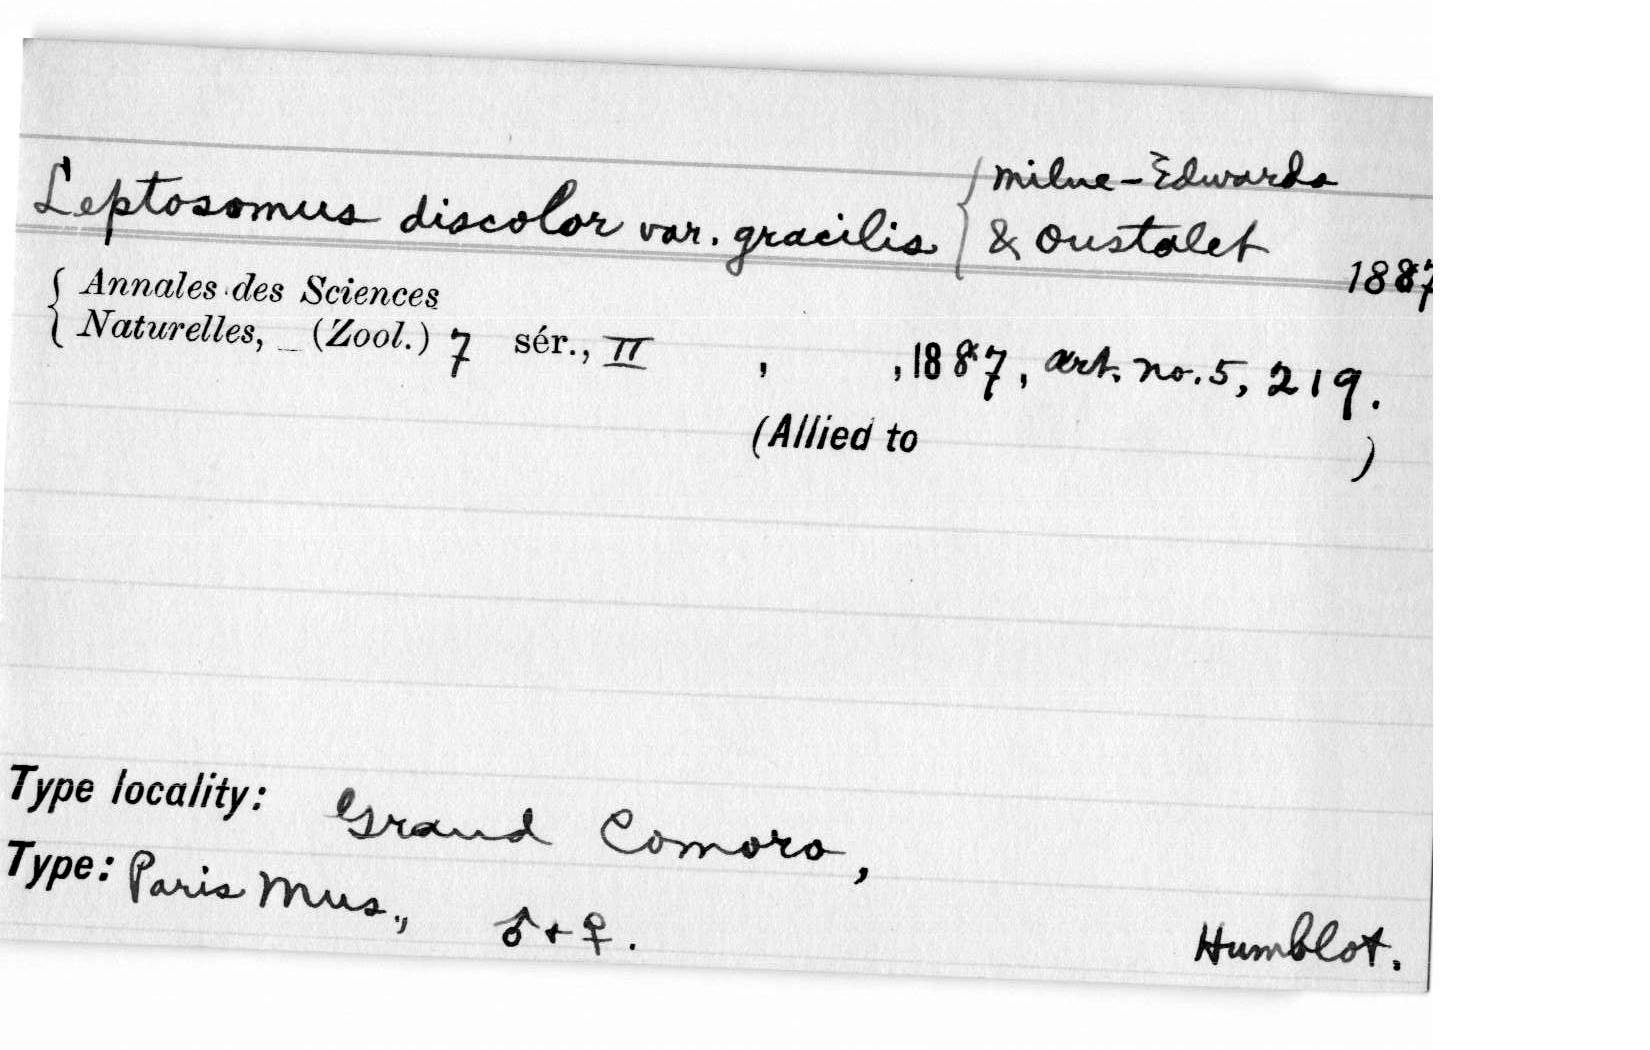 Leptosomus discolor var. gracilis { Milne-Edwards
& Oustalet
1887
{ Annales des Sciences
Naturelles, _ (Zool.) 7 sér., II , , 1887, art. no. 5, 219.
(Allied to )
Type locality: Grand Comoro,
Type: Paris Mus., ♂ + ♀.
Humblot.